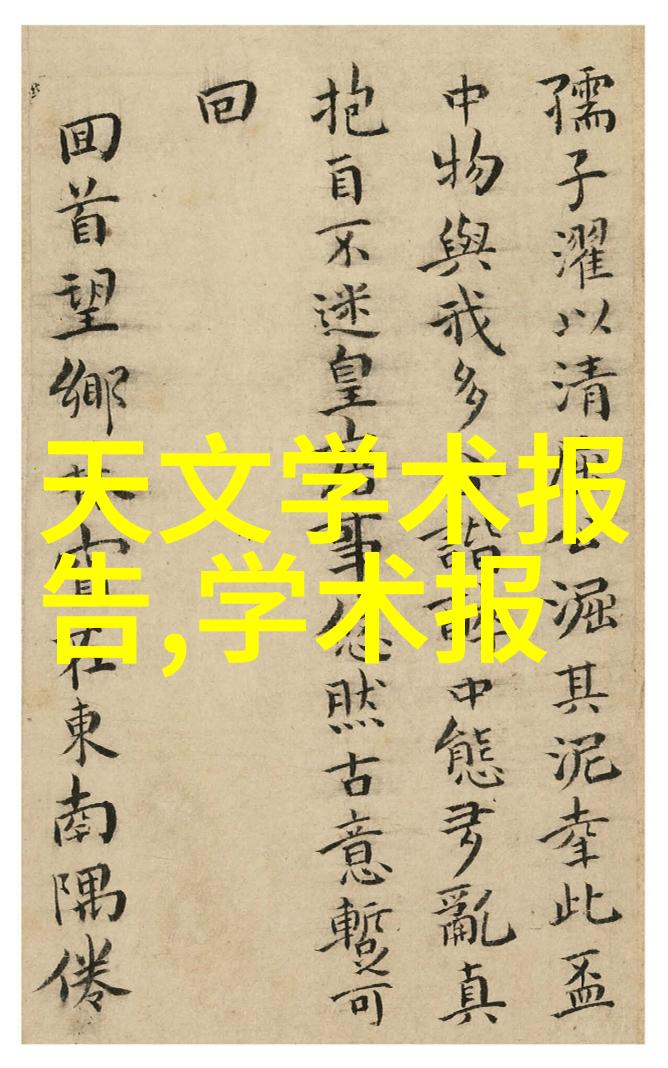 孺子濯以清公淈其泥此盃
中物與我多諧中態多亂真
抱自不迷皇事忽然古意暫可
回
回首望鄉在東南隅倦
天文学术报
告,学术报